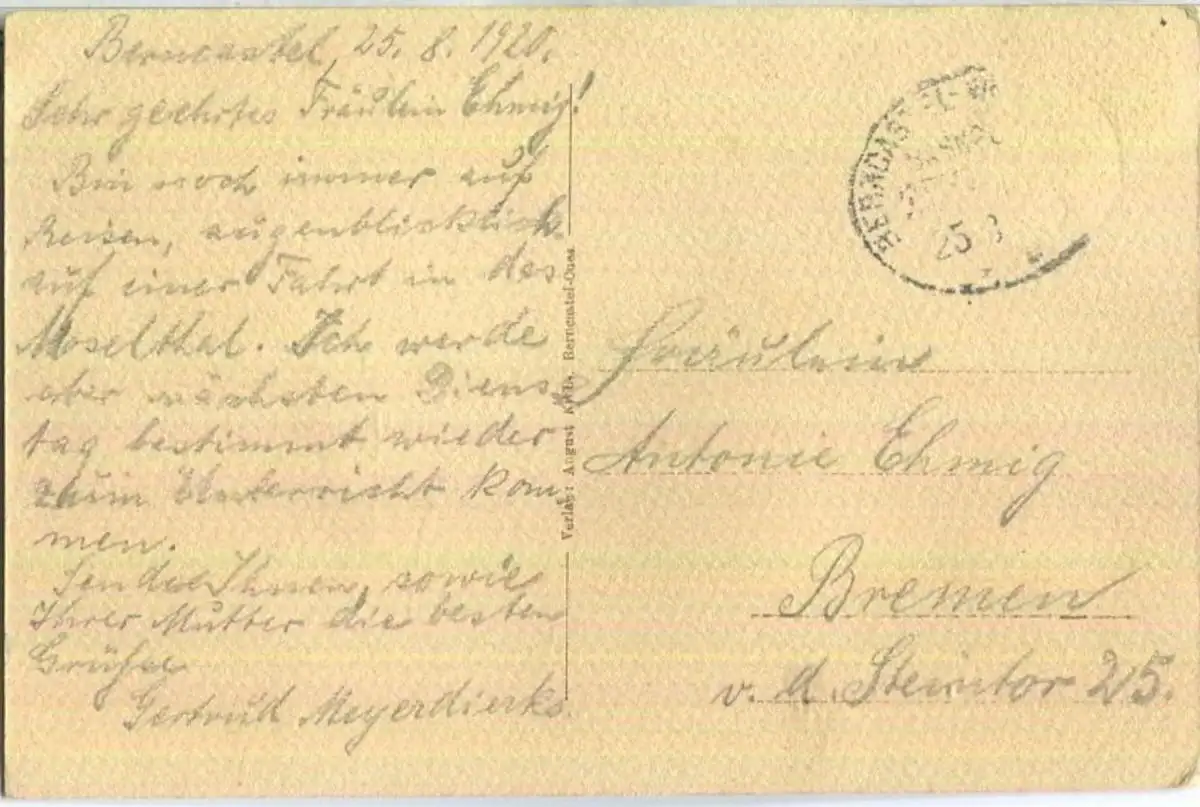 Berncastel, 25. 8. 1920.
Sehr geehrtes Fräulein Ehmig!
Bin noch immer auf
Reisen, augenblicklich
auf einer Fahrt in das
Moselthal. Ich werde
aber nächsten Diens-
tag bestimmt wieder
zum Unterricht kom-
men.
Sende Ihnen, sowie
Ihrer Mutter die besten
Grüße
Gertrud Meyerdierks.
Verlag: August Berncastel-Cues
BERNCASTEL-W
25 8
Fräulein
Antonie Ehmig
Bremen
v. d. Steintor 25.